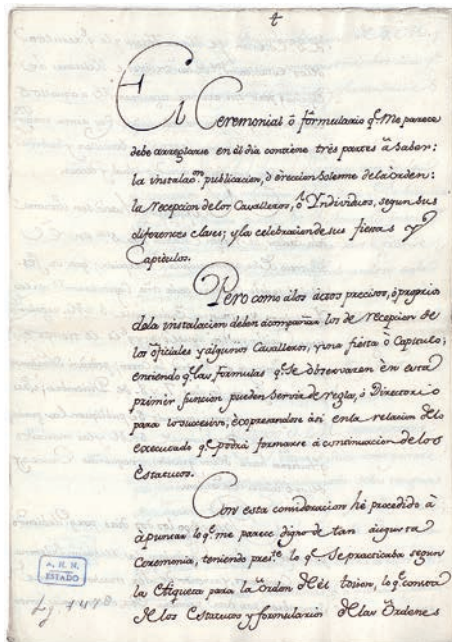 t
El Ceremonial ó formulario q.e Me parece
debe arreglarse en el dia contiene tres partes â Saber:
la instalac.on publicacion, ó ereccion Solemne de la Orden:
la recepcion de los Cavalleros, ó Individuos, segun sus
diferentes clases; y la celebracion de sus fiestas y
Capitulos.
Pero como a los actos precisos, ó proprios
de la instalacion deben acompañar los de recepcion de
los oficiales y algunos Cavalleros, y una fiesta ó Capitulo;
entiendo q.e las formulas q.e Se observaren en esta
primer funcion pueden Servir de regla, ó Directorio
para lo sucesivo, expresandose asi en la relacion de lo
executado q.e podrá formarse á continuacion de los
Estatutos.
Con esta consideracion hé procedido â
apuntar lo q.e me parece digno de tan augusta
Ceremonia, teniendo pres.te lo q.e Se practicaba segun
la Etiqueta para la Orden de el toison, lo q.e consta
de los Estatutos y formularios de las Ordenes
A. H. N.
ESTADO